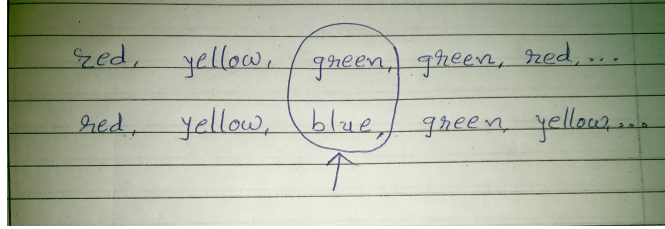 red, yellow, green, green, red,...
red, yellow, blue, green, yellow,...